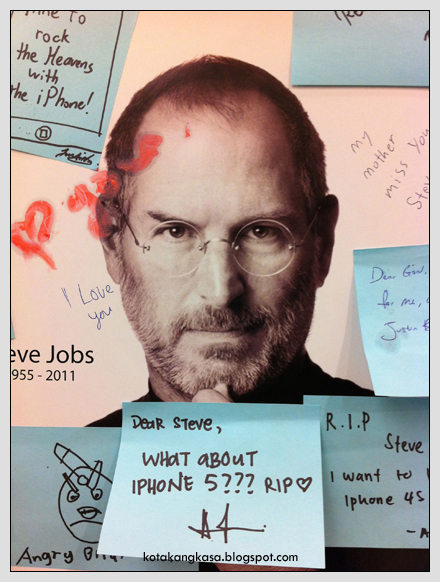 rock
the Heavens
with
the iPhone!
my
mother
miss You
Steve
I Love
you
Dear God,
for me,
Justin
eve Jobs
955 - 2011
DEAR STEVE,
WHAT ABOUT
IPHONE 5??? RIP♡
R.I.P
Steve
I want to
Iphone 4S
Angry Bird
kotakangkasa.blogspot.com